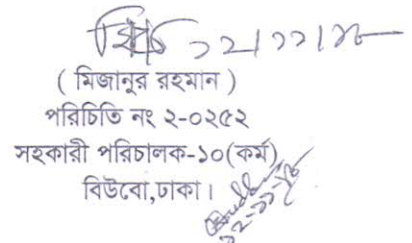 ১২/১১/১৮
( মিজানুর রহমান )
পরিচিতি নং ২-০২৫২
সহকারী পরিচালক-১০(কর্ম)
বিউবো,ঢাকা।